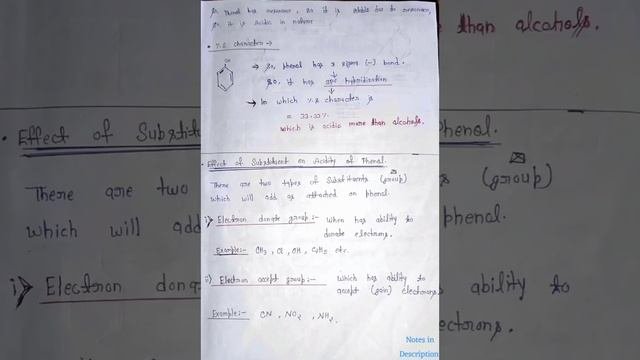 So, Phenol has resonance, so it is stable due to resonance,
so it is acidic in nature
• % S character →
OH
→ So, phenol has 3 sigma (-) bond.
So, it has sp2 hybridization
→ In which % S character is
= 33.33%
which is acidic more than alcohols.
• Effect of Substituent on Acidity of Phenol.
There are two types of Substituents (group)
which will add as attached on phenol.
i) Electron donate group:- When has ability to
donate electrons.
Example:- CH3, Cl, OH, C2H5 etc.
ii) Electron accept group:- Which has ability to
accept (gain) electrons
Example:- CN, NO2, NH2.
Notes in
Description
than alcohols.
• Effect of Substit
Phenol.
There are two
(group)
which will add
phenol.
i) Electron dona
ability to
ectrons.